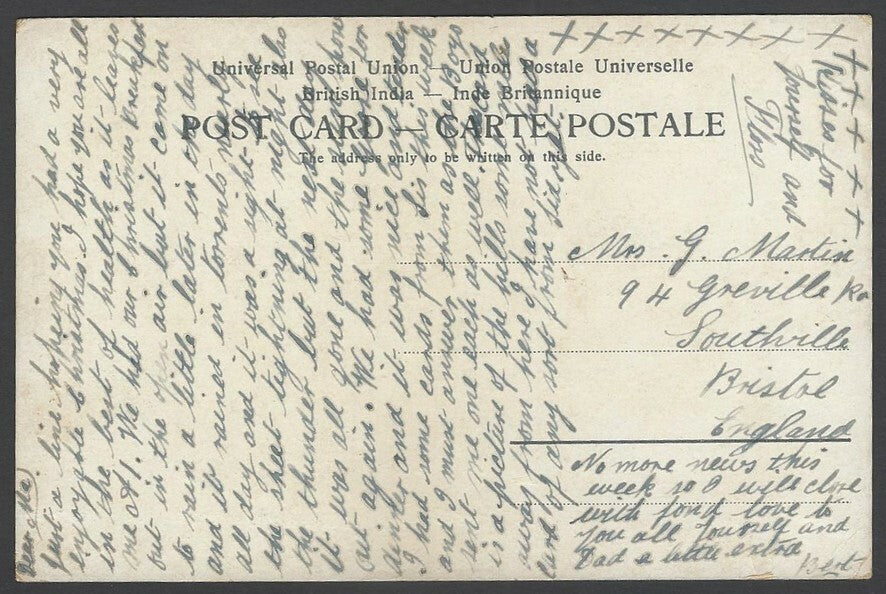 Universal Postal Union — Union Postale Universelle
British India — Inde Britannique
POST CARD — CARTE POSTALE
The address only to be written on this side.
Dear Ma)
Just a line hoping you had a very
enjoyable Christmas I hope you are all
in the best of health as it leaves
me at 1. We had our Christmas breakfast
out in the open air but it came on
to rain a little later in the day
and it rained in torrents nearly
all day and it was a sight to see
the sheet lightning at night also
the thunder but the next day
it was all gone and the sun shone
out again. We had some for
dinner and it was nice and tender
I had some cards from Sis this week
and I must answer them as the Boys
sent me one each as well. This card
is a picture of the hills some miles
away from here I have not had a
card of any sort from
Mrs. G. Martin
94 Greville Rd
Southville
Bristol
England
No more news this
week so I will close
with fond love to
you all Yourself and
Dad a little extra
Bert
x x x x x x x x
x x x x x
Kisses for
and
Flos